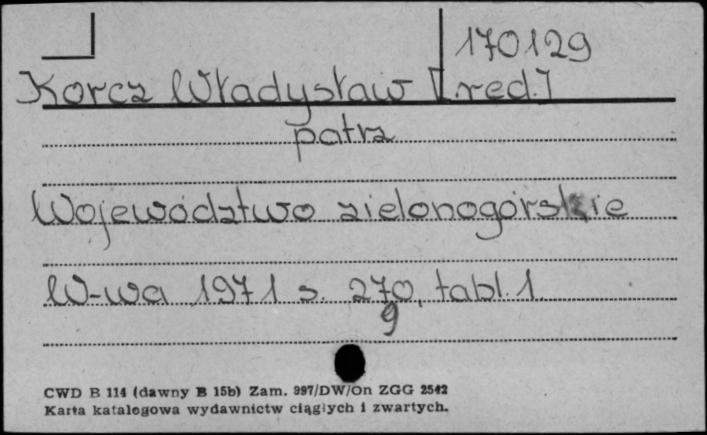 170129
Korcz Władysław [red.]
patrz
Województwo zielonogórskie
W-wa 1971 s. 270, tabl. 1.
9
CWD B 114 (dawny B 15b) Zam. 997/DW/On ZGG 2542
Karta katalogowa wydawnictw ciągłych i zwartych.